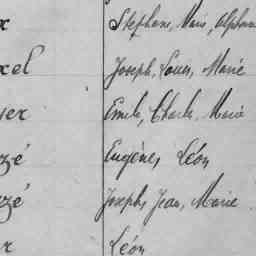 x Stéphane, Marie, Alphons
xel Joseph, Louis, Marie
yer Emile, Charles, Marie
zé Eugène, Léon
zé Joseph, Jean, Marie
r Léon